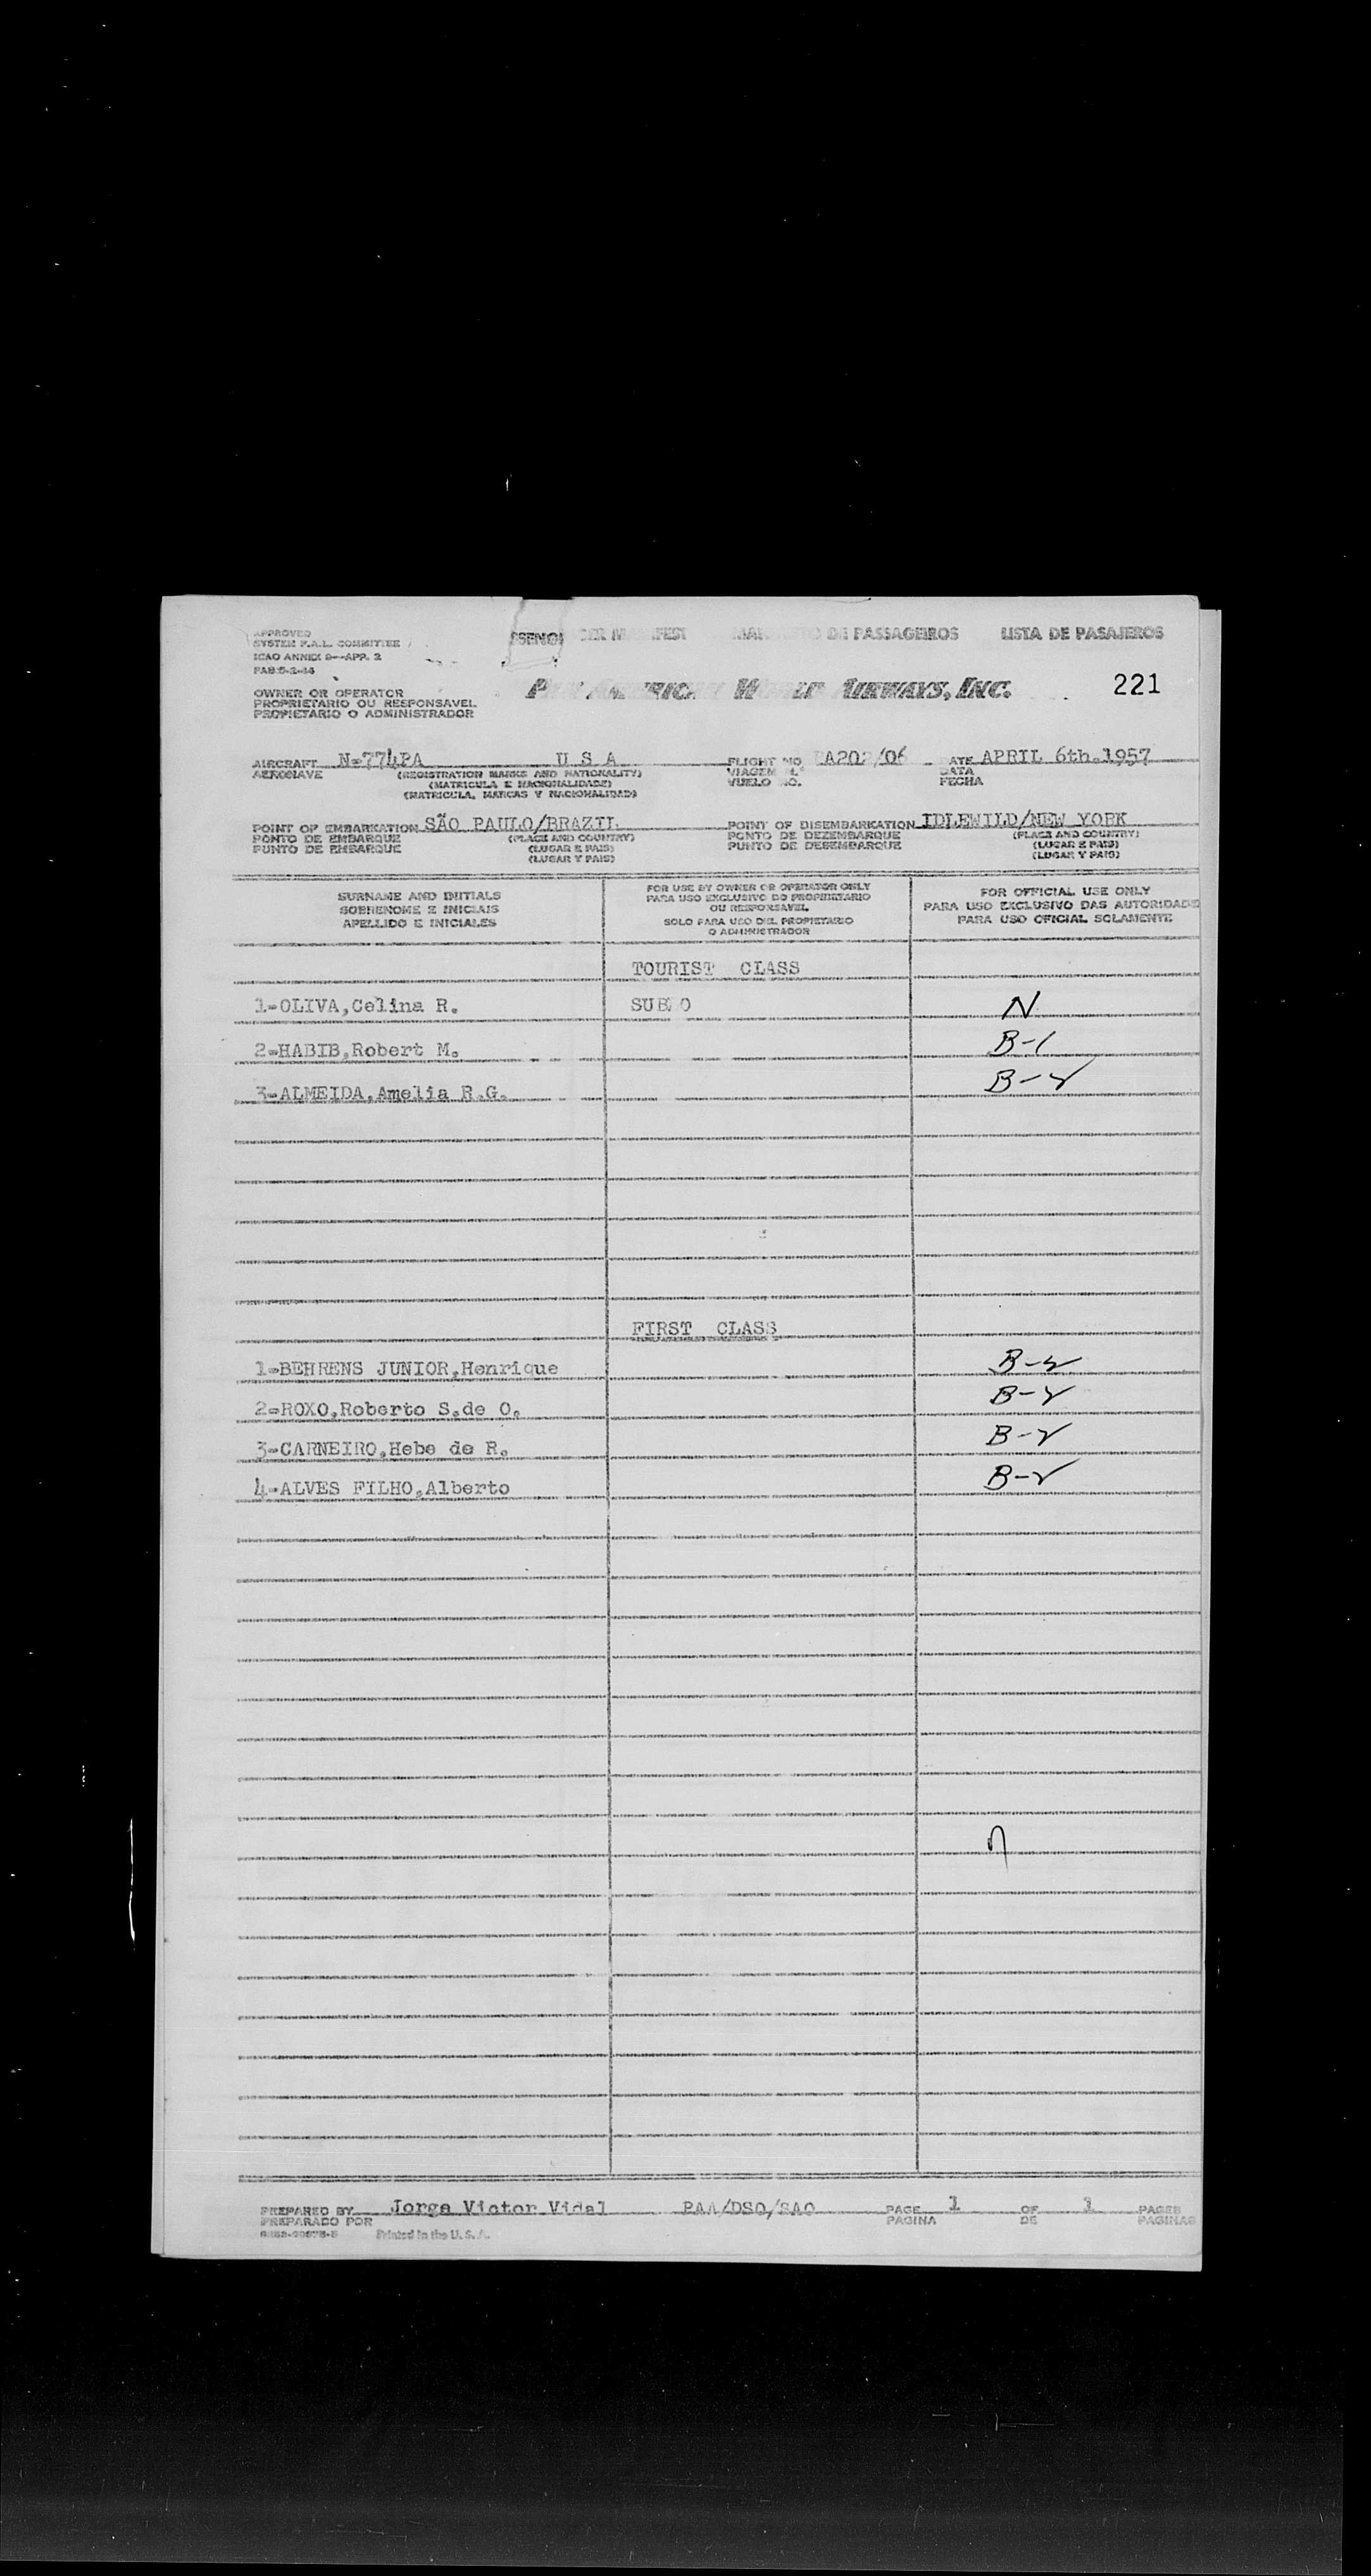 APPROVED
SYSTEM F.A.L. COMMITTEE
ICAO ANNEX 9—APP. 2
FAB 5-2-44
MANIFESTO DE PASSAGEIROS LISTA DE PASAJEROS
PAN AMERICAN WORLD AIRWAYS, INC.
221
OWNER OR OPERATOR
PROPRIETARIO OU RESPONSAVEL
PROPIETARIO O ADMINISTRADOR
AIRCRAFT N-774PA U S A FLIGHT NO PA202/06 DATE APRIL 6th.1957
AERONAVE (REGISTRATION MARKS AND NATIONALITY) VIAGEM N.° DATA
(MATRICULA E NACIONALIDADE) VUELO NO. FECHA
(MATRICULA, MARCAS Y NACIONALIDAD)
POINT OF EMBARKATION SÃO PAULO/BRAZIL POINT OF DISEMBARKATION IDLEWILD/NEW YORK
PONTO DE EMBARQUE (PLACE AND COUNTRY) PONTO DE DEZEMBARQUE (PLACE AND COUNTRY)
PUNTO DE EMBARQUE (LUGAR E PAIS) PUNTO DE DESEMBARQUE (LUGAR E PAIS)
(LUGAR Y PAIS) (LUGAR Y PAIS)
SURNAME AND INITIALS
SOBRENOME E INICIAIS
APELLIDO E INICIALES
FOR USE BY OWNER OR OPERATOR ONLY
PARA USO EXCLUSIVO DO PROPRIETARIO
OU RESPONSAVEL
SOLO PARA USO DEL PROPIETARIO
O ADMINISTRADOR
FOR OFFICIAL USE ONLY
PARA USO EXCLUSIVO DAS AUTORIDADE
PARA USO OFICIAL SOLAMENTE
TOURIST CLASS
1-OLIVA,Celina R. N
2-HABIB,Robert M. B-1
3-ALMEIDA,Amelia R.G. B-2
FIRST CLASS
1-BEHRENS JUNIOR,Henrique B-2
2-ROXO,Roberto S.de O. B-2
3-CARNEIRO,Hebe de R. B-2
4-ALVES FILHO,Alberto B-2
PREPARED BY Jorge Victor Vidal PAA/DSO/SAO PAGE 1 OF 1 PAGES
PREPARADO POR PAGINA DE PAGINAS
Printed in the U. S. A.